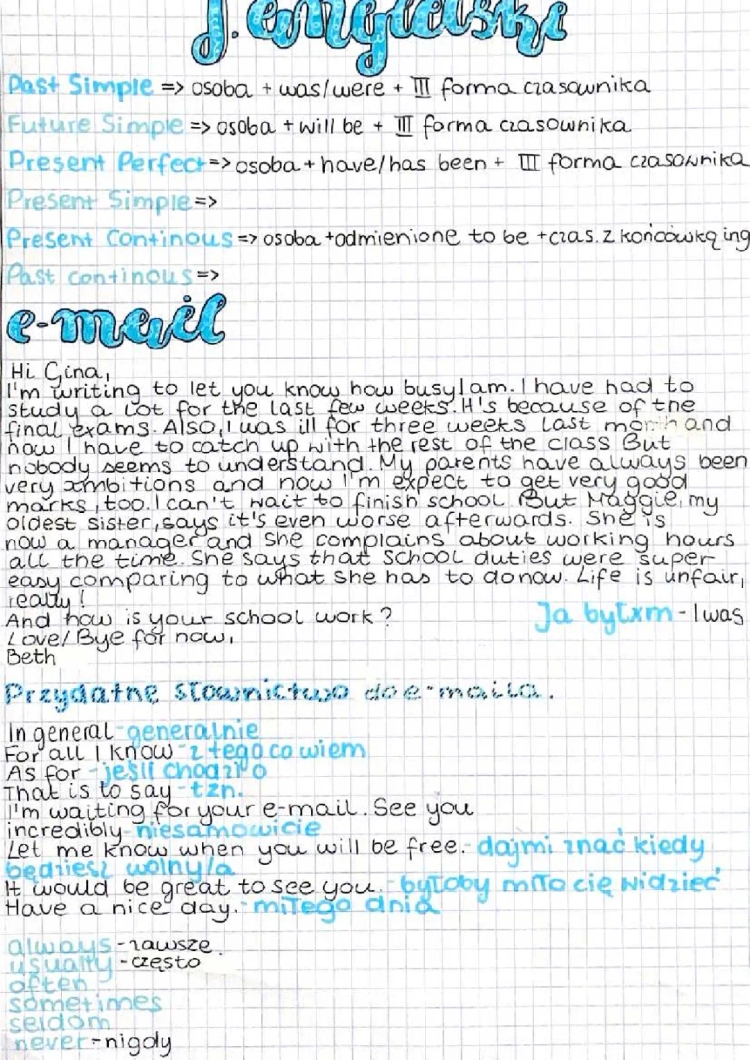 j. angielski
Past Simple => osoba + was/were + III forma czasownika
Future Simple => osoba + will be + III forma czasownika
Present Perfect => osoba + have/has been + III forma czasownika
Present Simple =>
Present Continous => osoba + odmienione to be + czas. z końcówką ing
Past continous =>
e-mail
Hi Gina,
I'm writing to let you know how busy I am. I have had to
study a lot for the last few weeks. It's because of the
final exams. Also, I was ill for three weeks last month and
now I have to catch up with the rest of the class But
nobody seems to understand. My parents have always been
very ambitions and now I'm expect to get very good
marks, too. I can't wait to finish school. But Maggie, my
oldest sister, says it's even worse afterwards. She is
now a manager and she complains about working hours
all the time. She says that school duties were super
easy comparing to what she has to do now. Life is unfair,
really!
And how is your school work? Ja byłxm - I was
Love/ Bye for now,
Beth
Przydatne słownictwo do e-maila.
In general - generalnie
For all I know - z tego co wiem
As for - jeśli chodzi o
That is to say - tzn.
I'm waiting for your e-mail. See you
incredibly - niesamowicie
Let me know when you will be free. - daj mi znać kiedy
będziesz wolny/a
It would be great to see you. - byłoby miło cię widzieć
Have a nice day. - miłego dnia
always - zawsze
usually - często
often
sometimes
seldom
never - nigdy